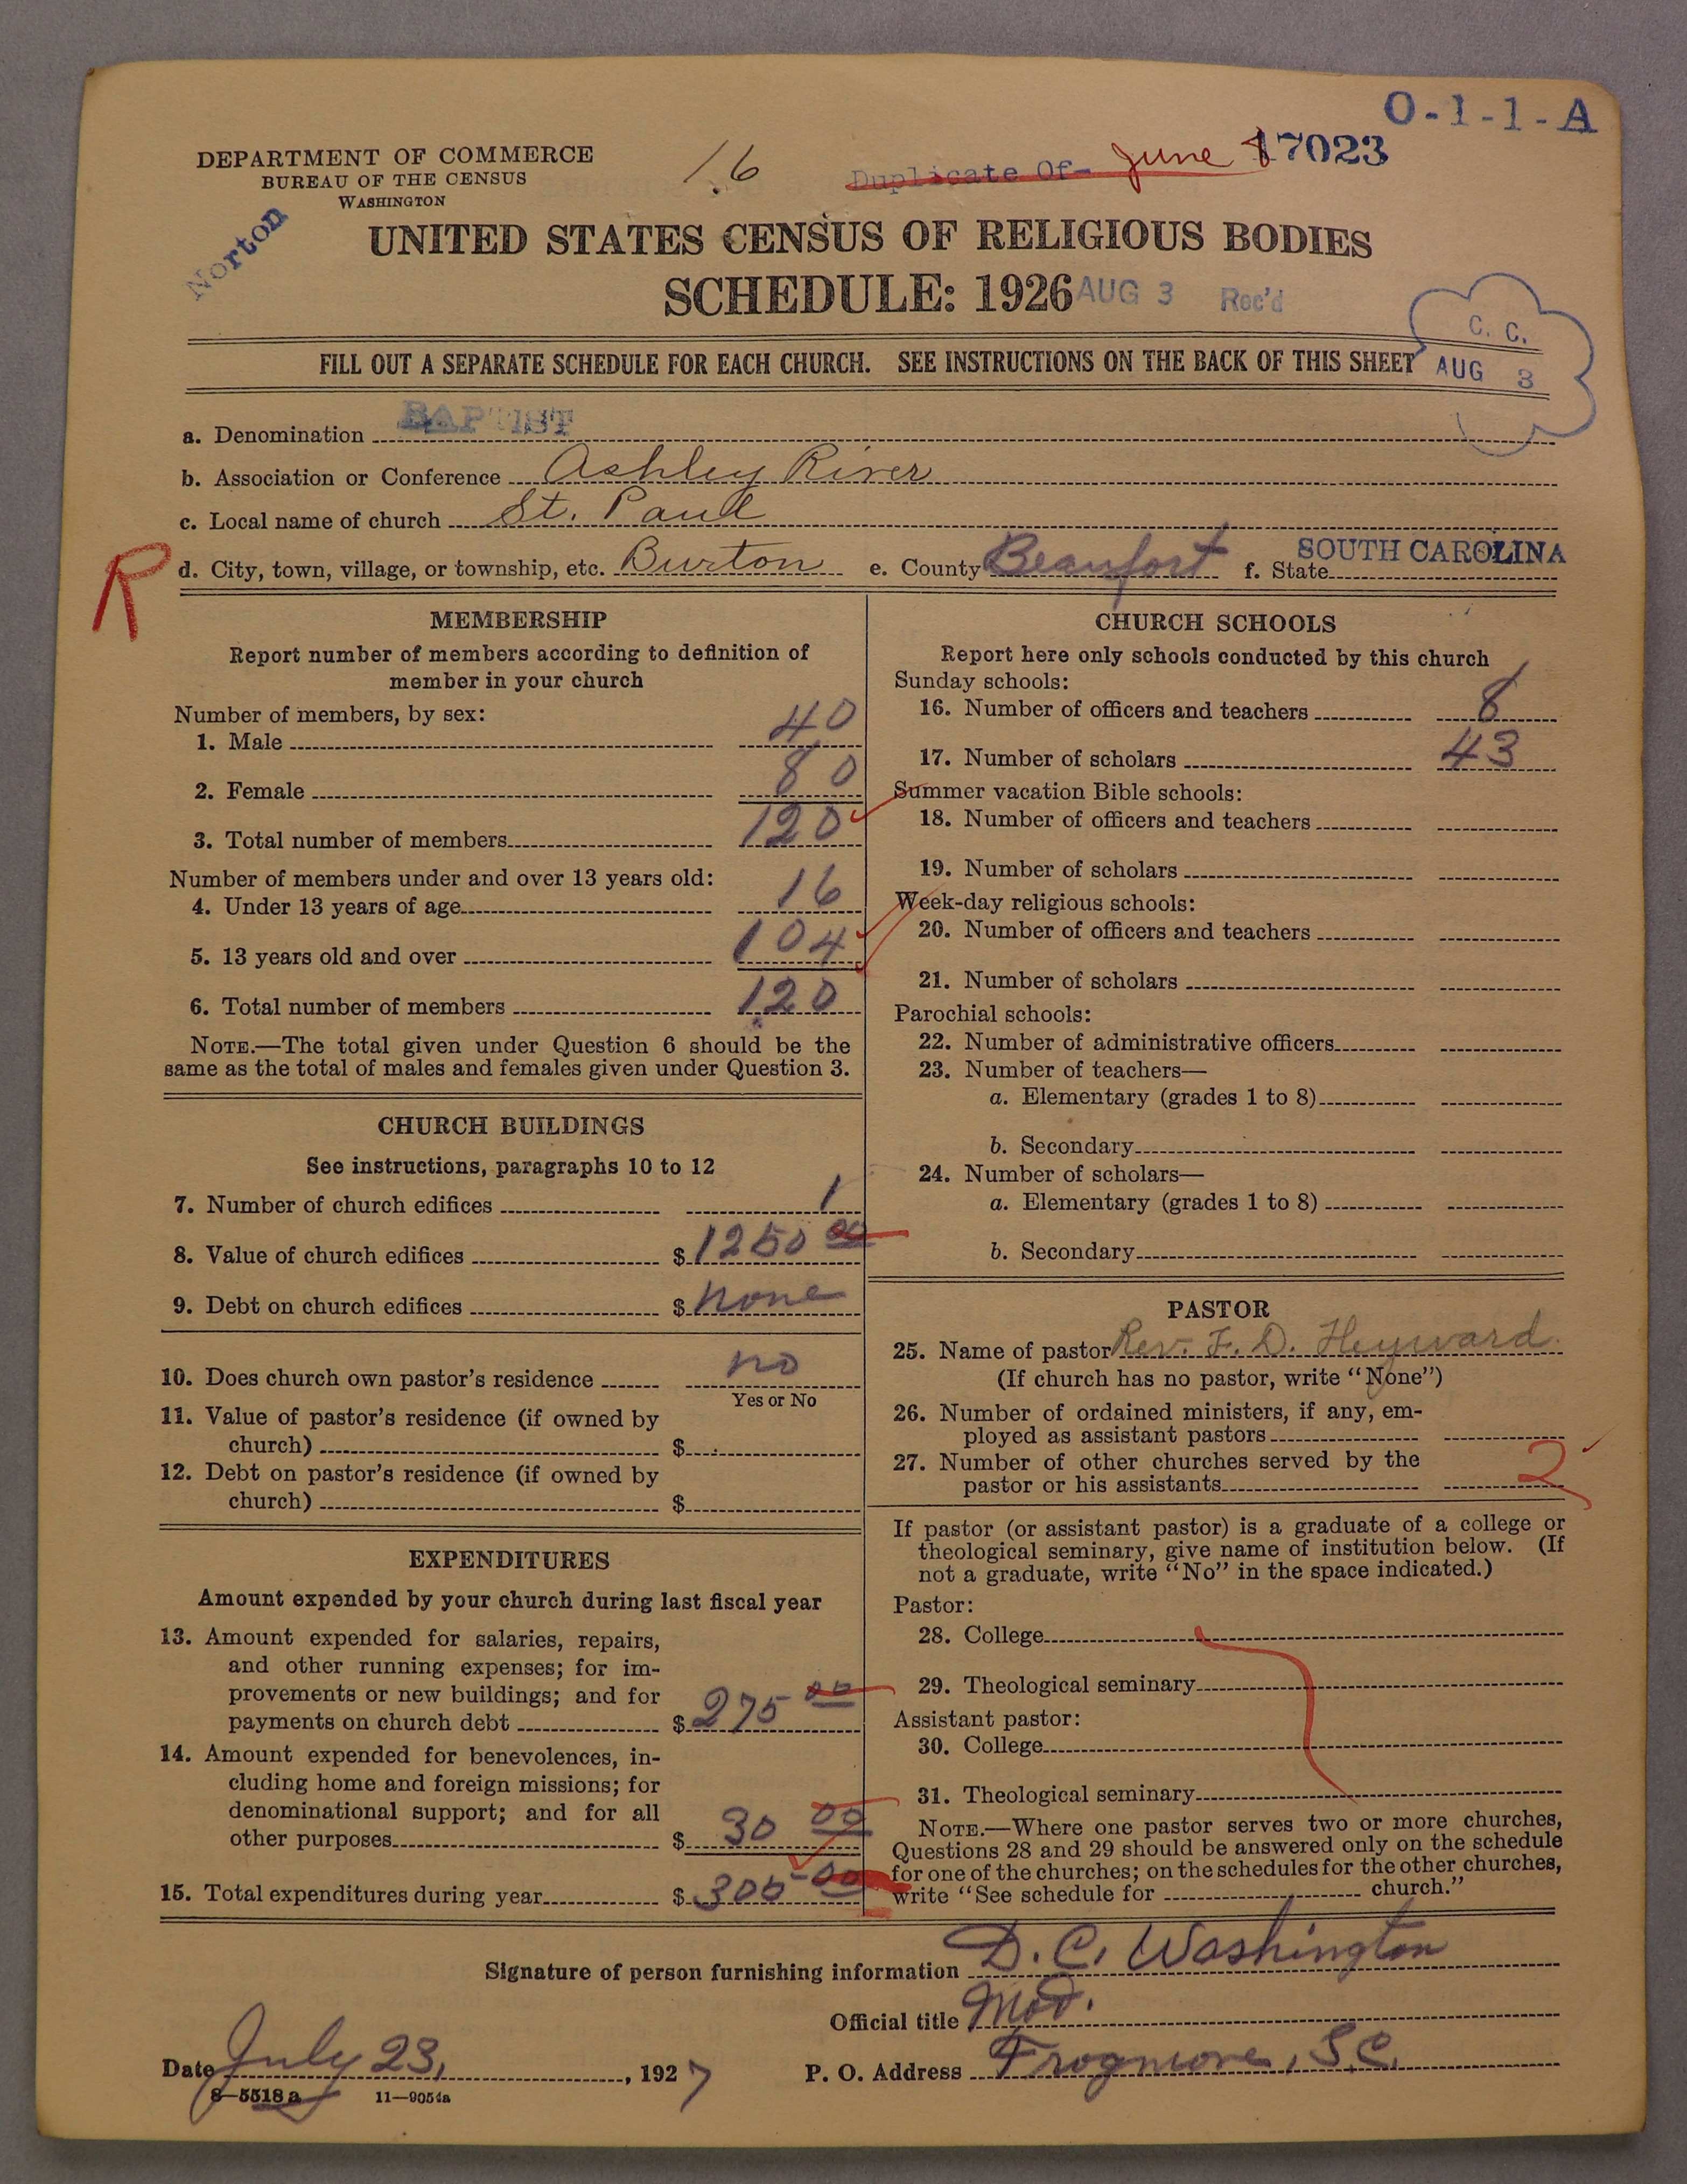 O-1-1-A
DEPARTMENT OF COMMERCE
BUREAU OF THE CENSUS
WASHINGTON
16
Duplicate Of- June 8
17023
Norton
UNITED STATES CENSUS OF RELIGIOUS BODIES
SCHEDULE: 1926
AUG 3 Rec'd
C. C.
AUG 3
FILL OUT A SEPARATE SCHEDULE FOR EACH CHURCH. SEE INSTRUCTIONS ON THE BACK OF THIS SHEET
a. Denomination BAPTIST
b. Association or Conference Ashley River
c. Local name of church St. Paul
R
d. City, town, village, or township, etc. Burton e. County Beaufort f. State SOUTH CAROLINA
MEMBERSHIP
Report number of members according to definition of
member in your church
Number of members, by sex:
1. Male 40
2. Female 80
3. Total number of members 120
Number of members under and over 13 years old:
4. Under 13 years of age 16
5. 13 years old and over 104
6. Total number of members 120
NOTE.—The total given under Question 6 should be the
same as the total of males and females given under Question 3.
CHURCH BUILDINGS
See instructions, paragraphs 10 to 12
7. Number of church edifices 1
8. Value of church edifices $ 1250 00
9. Debt on church edifices $ none
10. Does church own pastor's residence no
Yes or No
11. Value of pastor's residence (if owned by
church) $
12. Debt on pastor's residence (if owned by
church) $
EXPENDITURES
Amount expended by your church during last fiscal year
13. Amount expended for salaries, repairs,
and other running expenses; for im-
provements or new buildings; and for
payments on church debt $ 275 00
14. Amount expended for benevolences, in-
cluding home and foreign missions; for
denominational support; and for all
other purposes $ 30 00
15. Total expenditures during year $ 305 00
CHURCH SCHOOLS
Report here only schools conducted by this church
Sunday schools:
16. Number of officers and teachers 8
17. Number of scholars 43
Summer vacation Bible schools:
18. Number of officers and teachers
19. Number of scholars
Week-day religious schools:
20. Number of officers and teachers
21. Number of scholars
Parochial schools:
22. Number of administrative officers
23. Number of teachers—
a. Elementary (grades 1 to 8)
b. Secondary
24. Number of scholars—
a. Elementary (grades 1 to 8)
b. Secondary
PASTOR
25. Name of pastor Rev. F. D. Heyward
(If church has no pastor, write "None")
26. Number of ordained ministers, if any, em-
ployed as assistant pastors
27. Number of other churches served by the
pastor or his assistants 2
If pastor (or assistant pastor) is a graduate of a college or
theological seminary, give name of institution below. (If
not a graduate, write "No" in the space indicated.)
Pastor:
28. College
29. Theological seminary
Assistant pastor:
30. College
31. Theological seminary
NOTE.—Where one pastor serves two or more churches,
Questions 28 and 29 should be answered only on the schedule
for one of the churches; on the schedules for the other churches,
write "See schedule for church."
Signature of person furnishing information D. C. Washington
Official title Mod.
Date July 23, 1927 P. O. Address Frogmore, S.C.
8-5518a 11-9054a